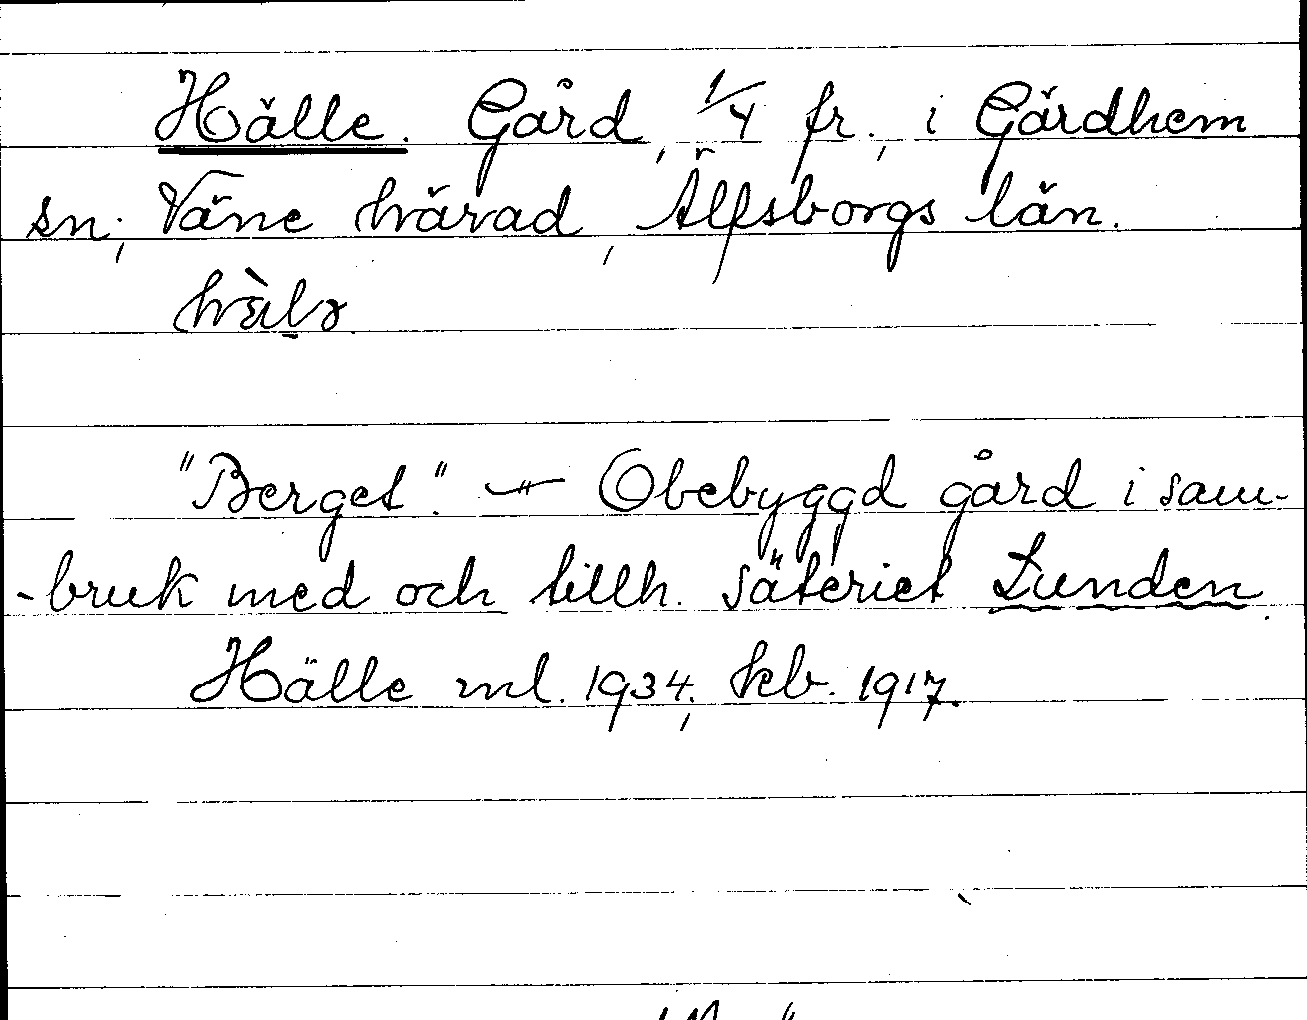 Hälle. Gård, 1/4 fr., i Gärdhem
sn, Väne härad, Älfsborgs län.
"Berget". — Obebyggd gård i sam-
-bruk med och tillh. säteriet Lunden.
Hälle ml. 1934, kb. 1917.